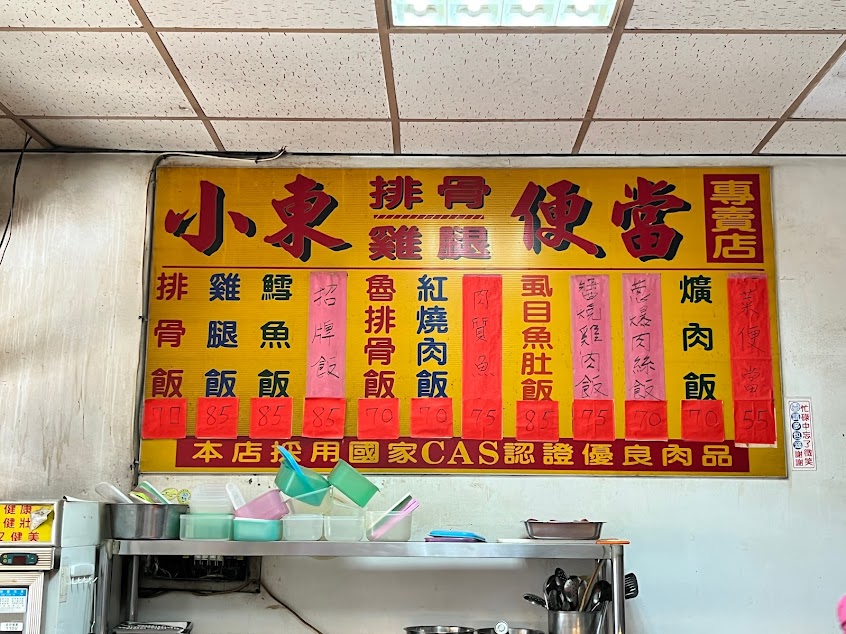 小東排骨雞腿便當專賣店
排骨飯 70
雞腿飯 85
鱈魚飯 85
招牌飯 85
魯排骨飯 70
紅燒肉飯 70
肉質魚 75
虱目魚肚飯 85
醬燒雞肉飯 75
蔥爆肉絲飯 70
爌肉飯 70
菜便當 55
本店採用國家CAS認證優良肉品
忙碌中忘了微笑
請多包涵
謝謝
健康
健壯
健美